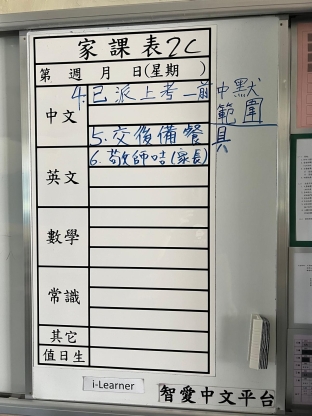 家課表2C
第 週 月 日(星期 )
中文
4.已派上考一前中默
範圍
5.交後備餐具
英文
6.敬師咭(家長)
數學
常識
其它
值日生
i-Learner
智愛中文平台